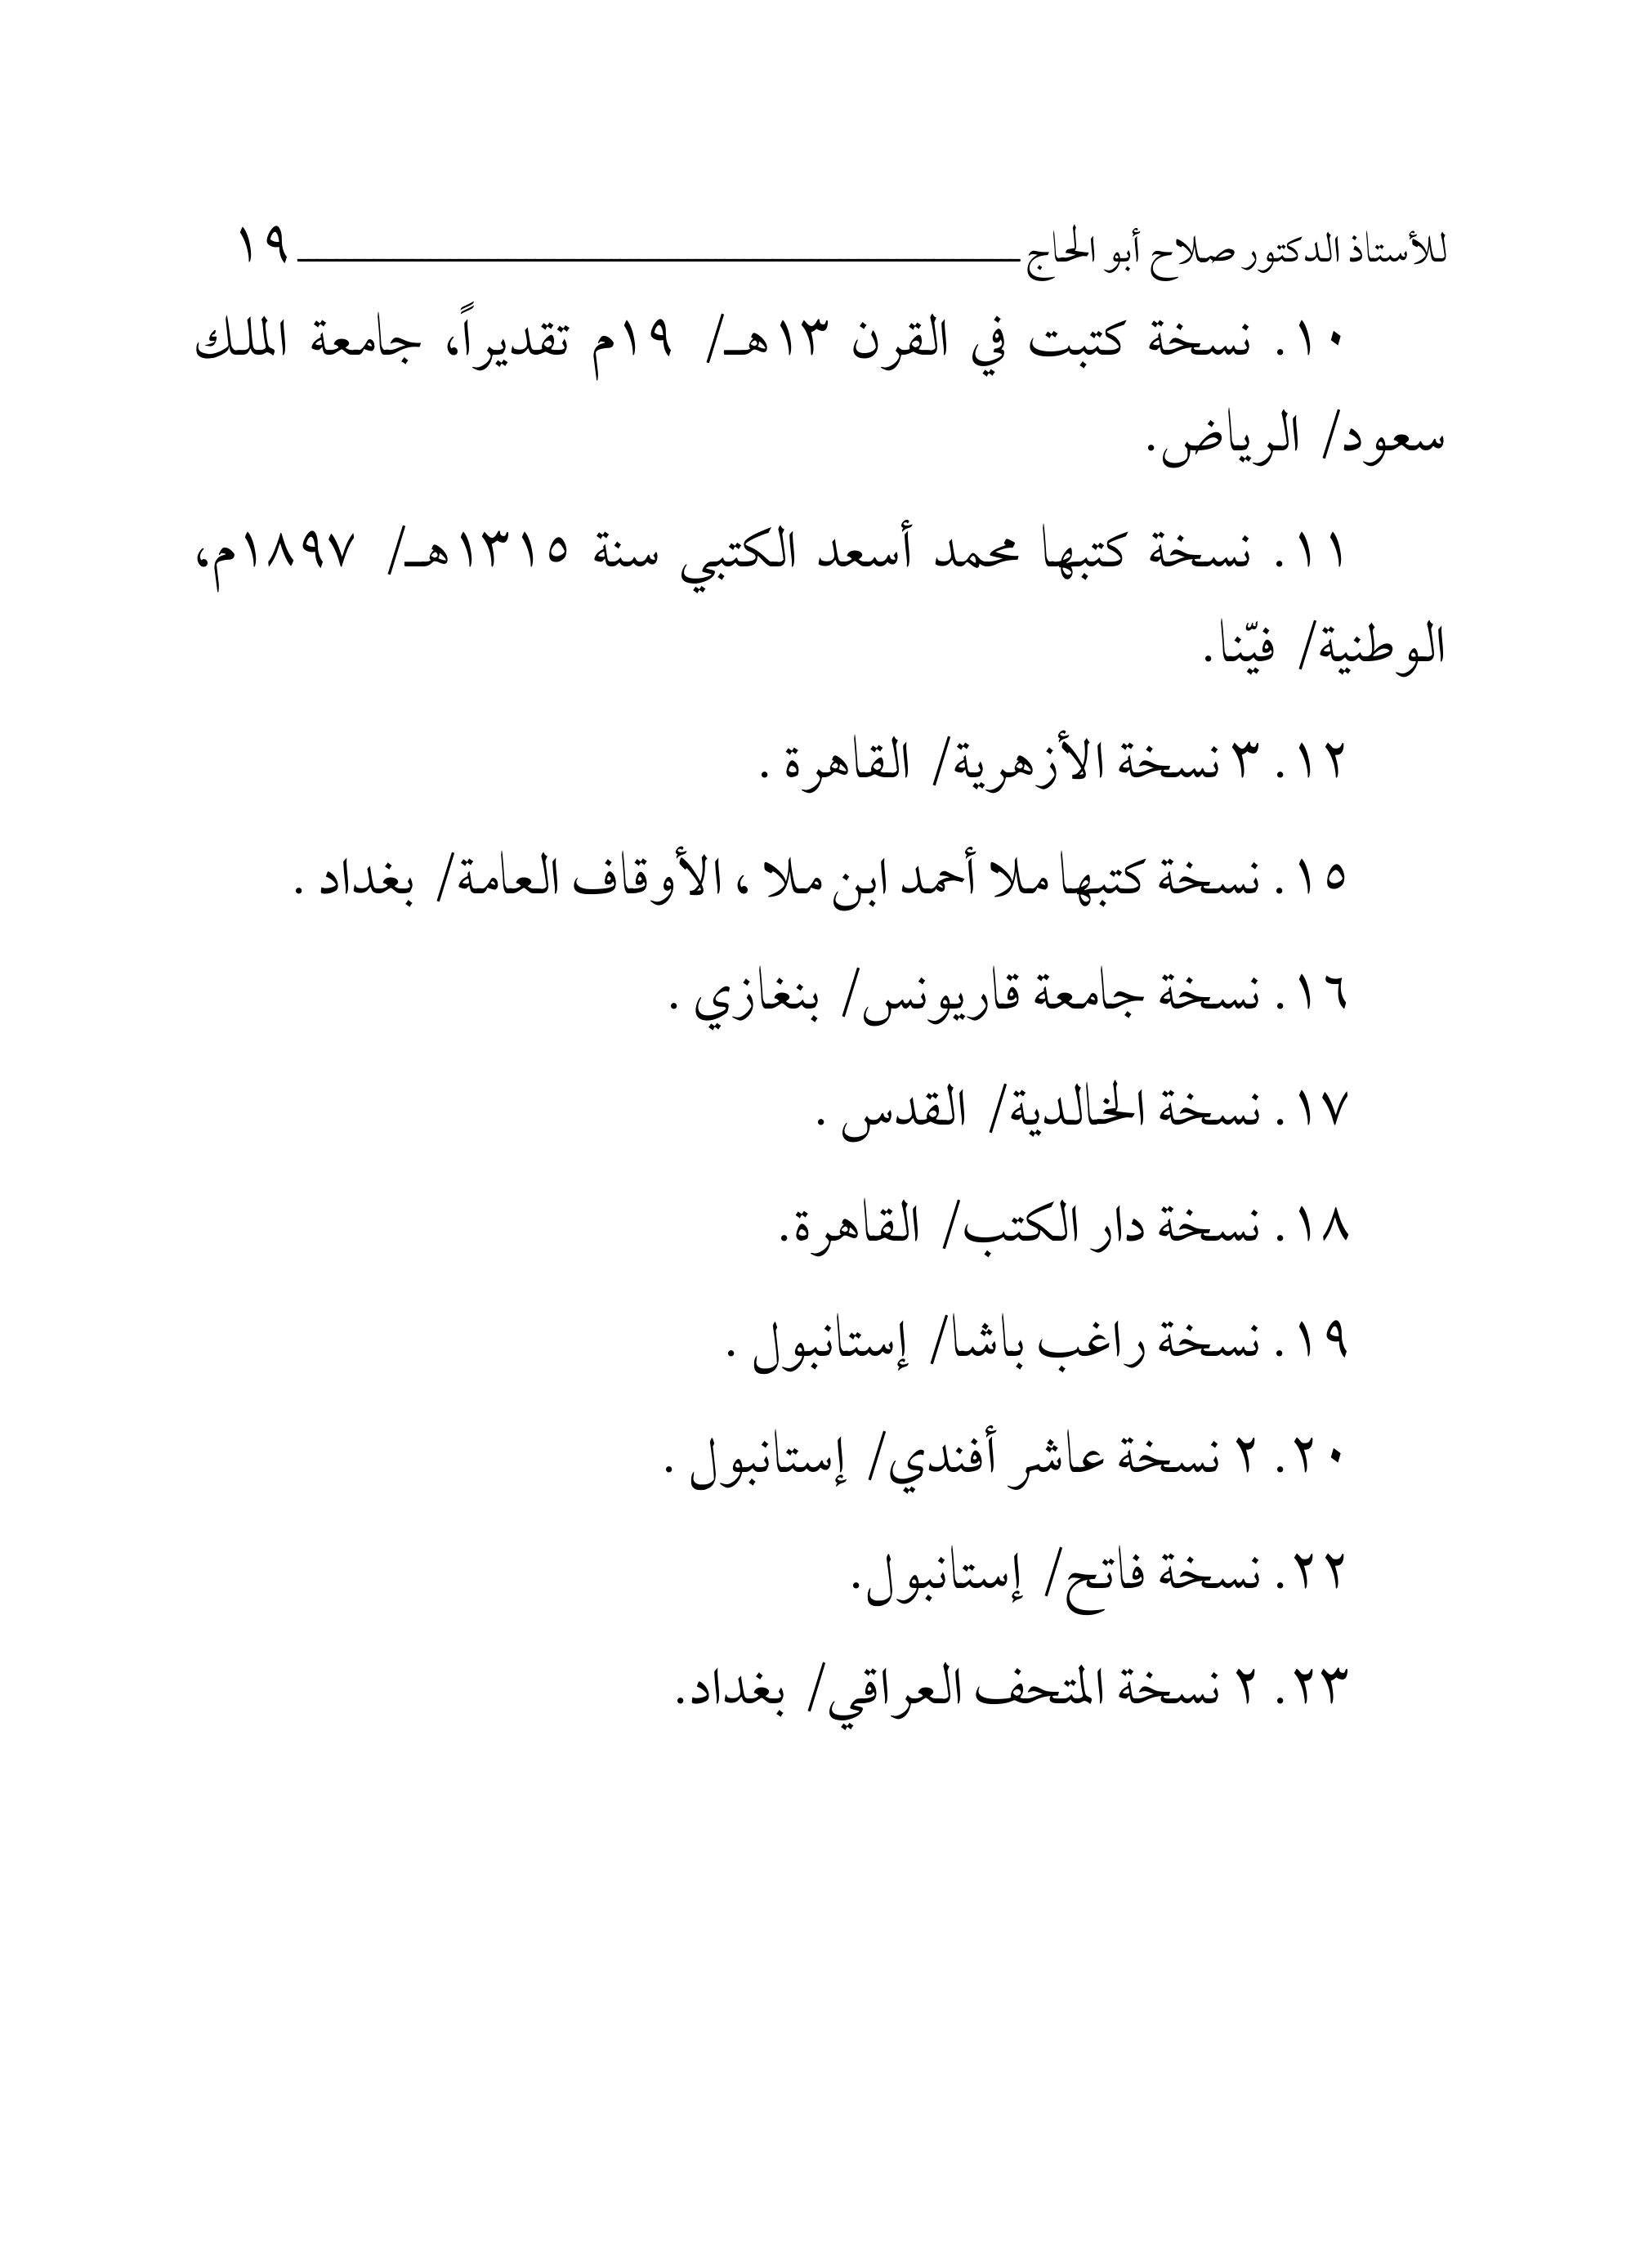 للأستاذ الدكتور صلاح أبو الحاج ــــــــــــــــــــــــــــــــــــــــــــــــ ١٩
١٠. نسخة كتبت في القرن ١٣هـ/ ١٩م تقديراً، جامعة الملك
سعود/ الرياض.
١١. نسخة كتبها محمد أسعد الكتبي سنة ١٣١٥هـ/ ١٨٩٧م،
الوطنية/ فيّنا.
١٢. ٣ نسخة الأزهرية/ القاهرة .
١٥. نسخة كتبها ملا أحمد ابن ملا ، الأوقاف العامة/ بغداد .
١٦. نسخة جامعة قاريونس/ بنغازي .
١٧. نسخة الخالدية/ القدس .
١٨. نسخة دار الكتب/ القاهرة.
١٩. نسخة راغب باشا/ إستانبول .
٢٠. ٢ نسخة عاشر أفندي/ إستانبول .
٢٢. نسخة فاتح/ إستانبول.
٢٣. ٢ نسخة المتحف العراقي/ بغداد.